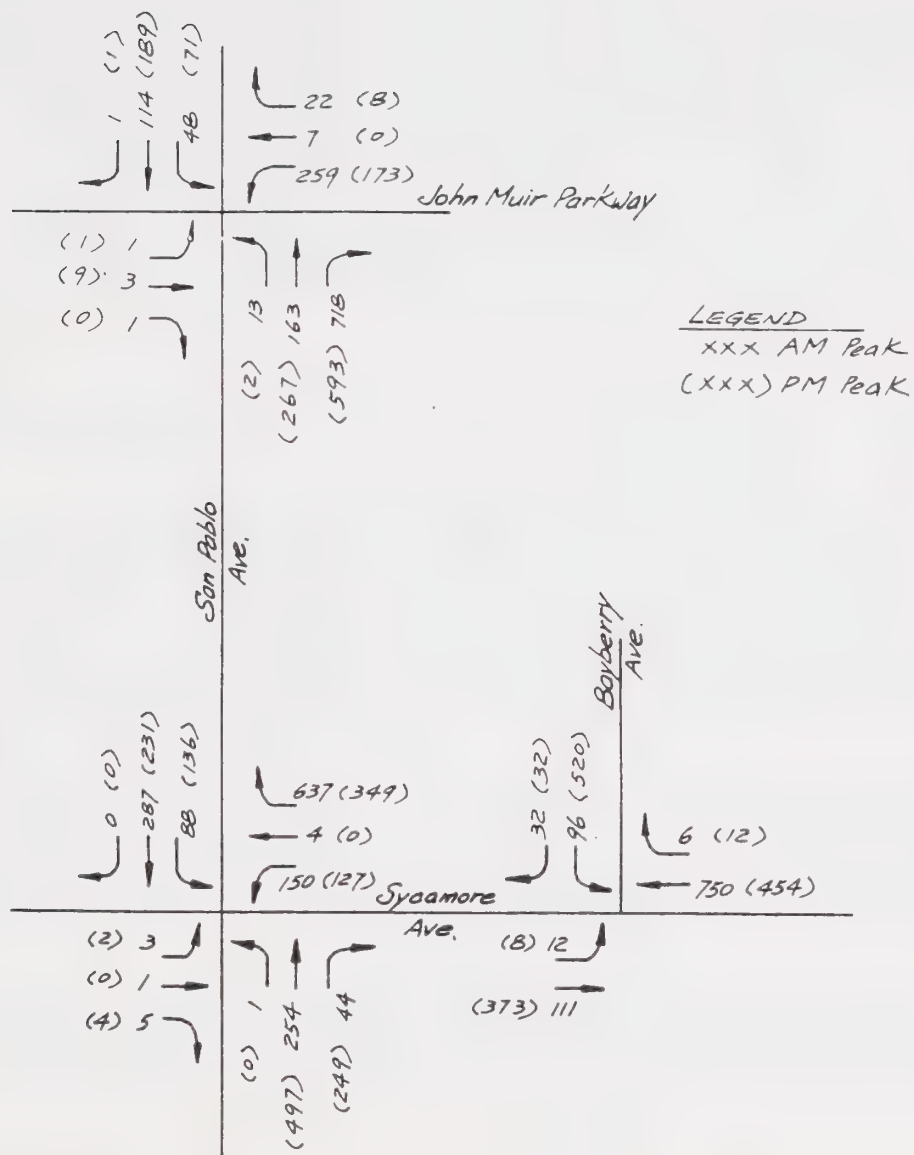 1 (1)
114 (189)
48 (71)
22 (8)
7 (0)
259 (173)
John Muir Parkway
(1) 1
(9) 3
(0) 1
(2) 13
(267) 163
(593) 718
LEGEND
xxx AM Peak
(xxx) PM Peak
San Pablo
Ave.
Bayberry
Ave.
0 (0)
287 (231)
88 (136)
637 (349)
4 (0)
150 (127)
Sycamore
Ave.
32 (32)
96 (520)
6 (12)
750 (454)
(2) 3
(0) 1
(4) 5
(0) 1
(497) 254
(249) 44
(8) 12
(373) 111